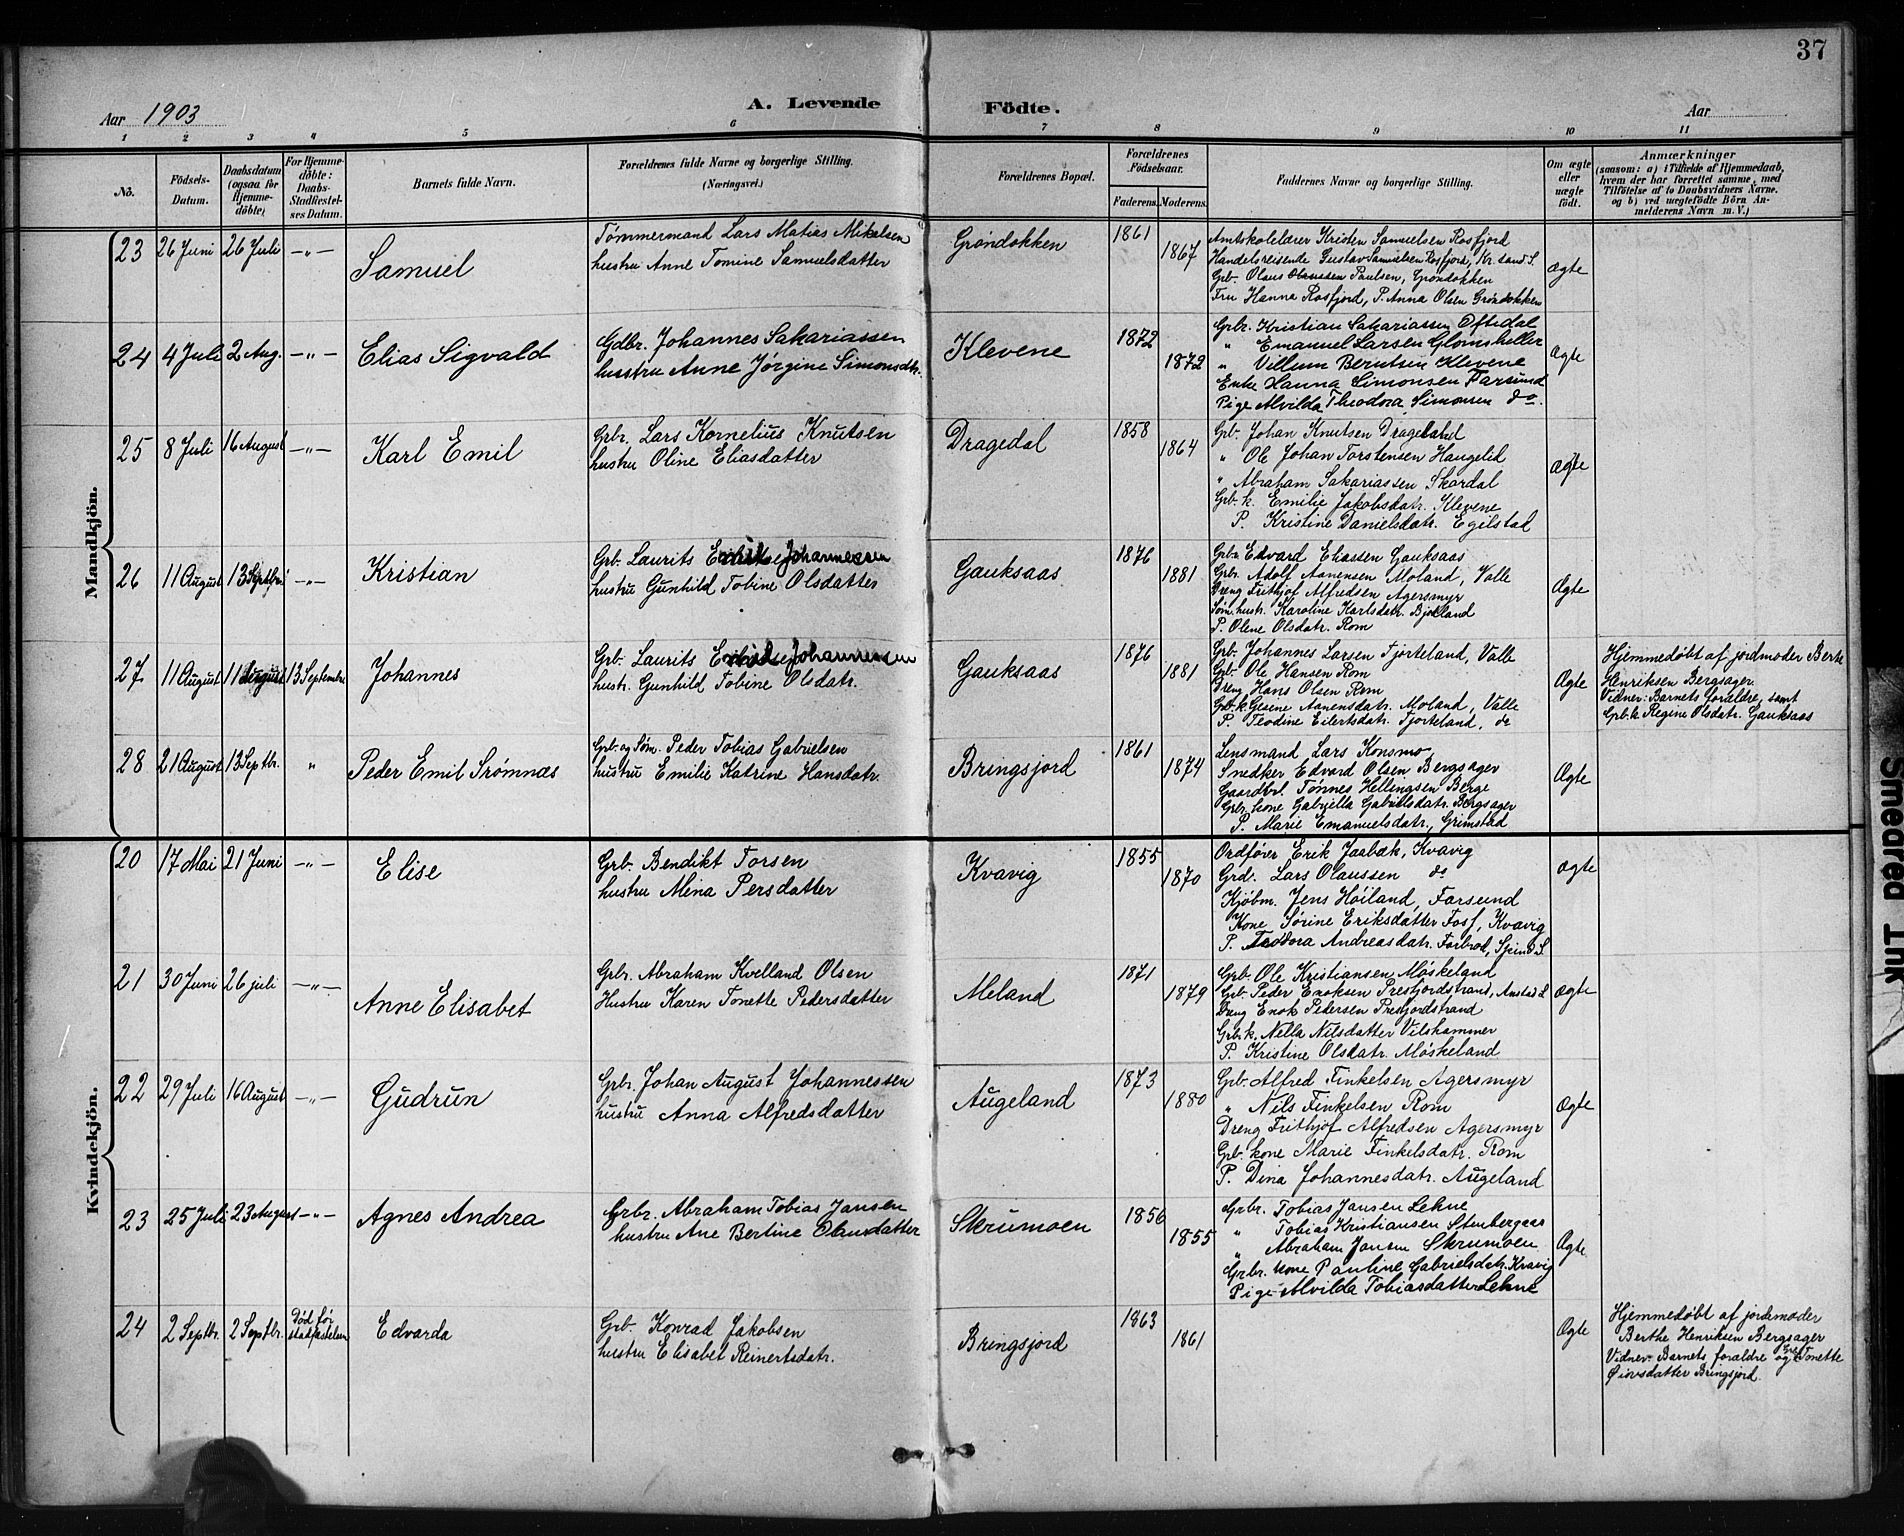 37
Aar 1903 A. Levende Födte. Aar
1 2 3 4 5 6 7 8 9 10 11
No. Födsels-Datum. Daabsdatum (ogsaa for Hjemme-döbte) For Hjemme-döbte: Daabs-Stadfæstel-ses Datum. Barnets fulde Navn. Forældrenes fulde Navne og borgerlige Stilling. (Næringsvei.) Forældrenes Bopæl. Forældrenes Födselsaar. Faderens. Moderens. Faddernes Navne og borgerlige Stilling. Om ægte eller uægte födt. Anmærkninger (saasom: a) i Tilfælde af Hjemmedaab, hvem der har forrettet samme, med Tilföielse af to Daabsvidners Navne. og b) ved uægtefödte Börn An-melderens Navn m. V.)
Mandkjön.
23 26 Juni 26 Juli -"- Samuel
Tømmermand Lars Matias Mikelsen
hustru Anne Tomine Samuelsdatter
Grøndokken 1861 1867
Amtskolelærer Kristen Samuelsen Rosfjord
Handelsreisende Gustav Samuelsen Rosfjord, Kr. sand S.
Grb. Olaus Olaussen Paulsen, Grøndokken
Fru Hanna Rosfjord, P. Anna Olsen Grøndokken
Ægte
24 4 Juli 2 Aug. -"- Elias Sigvald
Gdbr. Johannes Sakariassen
hustru Anne Jørgine Simonsdtr.
Klevene 1872 1872
Grbr. Kristian Sakariassen Oftedal
" Emanuel Larsen Glomsheller
" Villum Berntsen Klevene
Enke Hanna Simonsen Farsund
Pige Alvilda Theodora Simonsen do.
Ægte
25 8 Juli 16 August -"- Karl Emil
Grbr. Lars Kornelius Knutsen
hustru Oline Eliasdatter
Dragedal 1858 1864
Grb. Johan Knutsen Drageland
" Ole Johan Torstensen Haugelid
" Abraham Sakariassen Skardal
Grb. k. Emilie Jakobsdatr. Klevene
P. Kristine Danielsdatr. Egilstad
Ægte
26 11 August 13 Septbr. -"- Kristian
Grb. Laurits Johannessen
hustru Gunhild Tobine Olsdatter
Gauksaas 1876 1881
Grbr Edvard Eliassen Gauksaas
Grbr. Adolf Aanensen Moland, Valle
Dreng Frithjof Alfredsen Agersmyr
Søm. hustr. Karoline Karlsdatr. Bjelland
P. Olene Olsdatr. Rom
Ægte
27 11 August 11 August 13 Septembr Johannes
Grb. Laurits Johannessen
hustr. Gunhild Tobine Olsdatr.
Gauksaas 1876 1881
Grb. Johannes Larsen Fjorteland, Valle
Grb. Ole Hansen Rom
Dreng Hans Olsen Rom
Grb. k. Gesine Aanensdatr. Moland, Valle
P. Teodine Eilertsdatr. Fjorteland, do
Ægte
Hjemmedøbt af jordmoder Berte
Henriksen Bergsager.
Vidner: Barnets forældre, samt
Grb. k. Regine Olsdatr. Gauksaas
28 21 August 13 Septbr. " Peder Emil Srømnæs
Grb. og Søm. Peder Tobias Gabrielsen
hustru Emilie Katrine Hansdatr.
Bringsjord 1861 1874
Lensmand Lars Konsmo
Snedker Edvard Olsen Bergsager
Gaardbr. Tønnes Hellingsen Berge
Grbr. kone Gabriella Gabrielsdatr. Bergsager
P. Marie Emanuelsdatr., Grimstad
Ægte
Kvindekjön.
20 17 Mai 21 Juni -"- Elise
Grb. Bendikt Torsen
hustru Mina Persdatter
Kvavig 1855 1870
Ordfører Erik Jaabæk, Kvavig
Grd. Lars Olaussen do
Kjøbm. Jens Høiland, Farsund
Kone Sørine Eriksdatter Fosf, Kvavig
P. Teodora Andreasdatr. Forbrod, Spind S.
Ægte
21 30 Juni 26 juli -"- Anne Elisabet
Grbr. Abraham Kvelland Olsen
Hustru Karen Tonette Pedersdatter
Meland 1871 1879
Grb. Ole Kristiansen Møskeland
Grb. Peder Enoksen Presfjordstrand, Austad S.
Dreng Enok Pedersen Presfjordstrand
Grb. k. Nella Nilsdatter Vilshammer
P. Kristine Olsdatr. Møskeland
Ægte
22 29 Juli 16 August -"- Gudrun
Grbr. Johan August Johannessen
hustru Anna Alfredsdatter
Augeland 1873 1880
Grb. Alfred Finkelsen Agersmyr
" Nils Finkelsen Rom
Dreng Frithjof Alfredsen Agersmyr
Grb. kone Marie Finkelsdatr. Rom
P. Dina Johannesdatr. Augeland
Ægte
23 25 Juli 23 August -"- Agnes Andrea
Grbr. Abraham Tobias Jansen
hustru Ane Bertine Olausdatter
Skrumoen 1856 1855
Grbr. Tobias Jansen Lehne
" Tobias Kristiansen Stenbergaas
" Abraham Jansen Skrumoen
Grbr. kone Pauline Gabrielsdatr. Kvavig
Pige Alvilda Tobiasdatter Lehne
Ægte
24 2 Septbr. 2 Septbr. Død før stadfæstelsen Edvarda
Grb. Konrad Jakobsen
hustru Elisabet Reinertsdatr.
Bringsjord 1863 1861
Ægte
Hjemmedøbt af jordmoder
Berthe Henriksen Bergsager
Vidner: Barnets forældre og Tonette
Øiovsdatter Bringsjord.
Smeared Ink